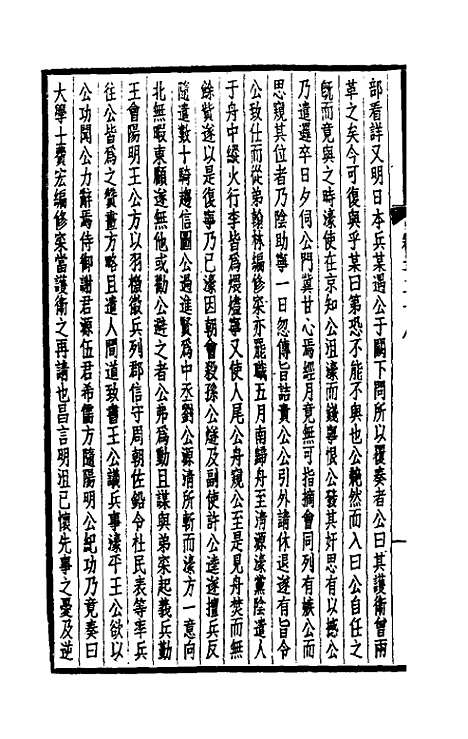 部看詳又明日本兵某遇公于闕下問所以覆奏者公曰其護衞曾兩
革之矣今可復與乎某曰第恐不能不與也公艴然而入曰公自任之
旣而竟與之時濠使在京知公沮濠而錢寧恨公發其奸思有以撼公
乃遣邏卒日夕伺公門冀甘心焉經月竟無可指摘會同列有嫉公而
思窺其位者乃陰助寧一日忽傳旨詰責公公引外請休退遂有旨令
公致仕而從弟翰林編修寀亦罷職五月南歸舟至清源濠黨陰遣人
于舟中縱火行李皆爲煨燼寧又使人尾公舟窺公至是見舟焚而無
餘貲遂以是復寧乃已濠因朝會殺孫公燧及副使許公逵遂擅兵反
隨遣數十騎趨信圖公過進賢爲中丞劉公源清所斬而濠方一意向
北無暇東顧遂無他或勸公避之者公弗爲動且謀與弟寀起義兵勤
王會陽明王公方以羽檄徵兵列郡信守周朝佐鉛令杜民表等率兵
往公皆爲之贊畫方略且遣人間道致書王公議兵事濠平王公欲以
公功聞公力辭焉侍御謝君源伍君希儒方隨陽明公紀功乃竟奏曰
大學士費宏編修寀當護衞之再請也昌言明沮已懷先事之憂及逆